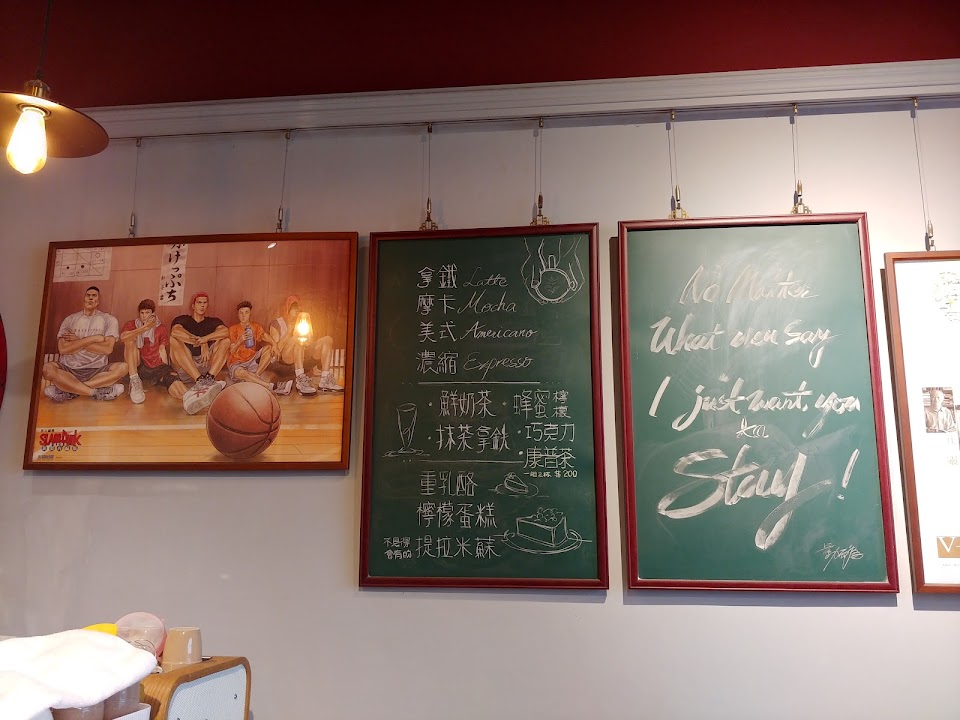 けっぷち
SLAM DUNK
拿鐵 Latte
摩卡 Mocha
美式 Americano
濃縮 Expresso
・鮮奶茶
・抹茶拿鉄
・蜂蜜檸檬
・巧克力
・康普茶
$200
重乳酪
檸檬蛋糕
不是很會有的
提拉米蘇
No Matter
What you say
I just want you
to
Stay!
V